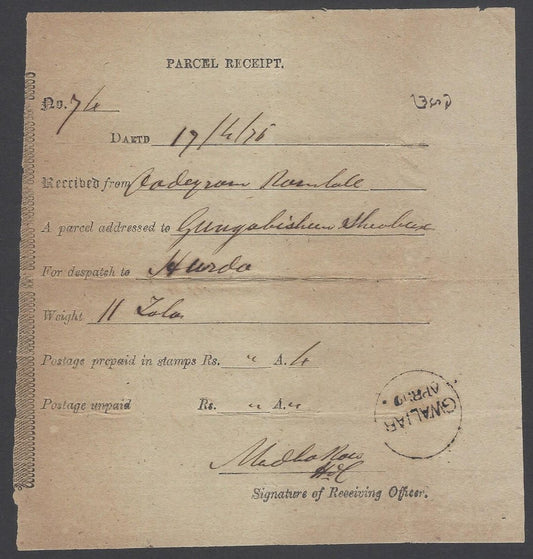 PARCEL RECEIPT.
No. 74
DAETD 17/4/75
Received from Oodeyram Ramlall
A parcel addressed to Gungabishen Sheobux
For despatch to Hurda
Weight 11 Tola
Postage prepaid in stamps Rs. " A. 4
Postage unpaid Rs. " A. "
GWALIAR
APR
Madho Row
Signature of Receiving Officer.